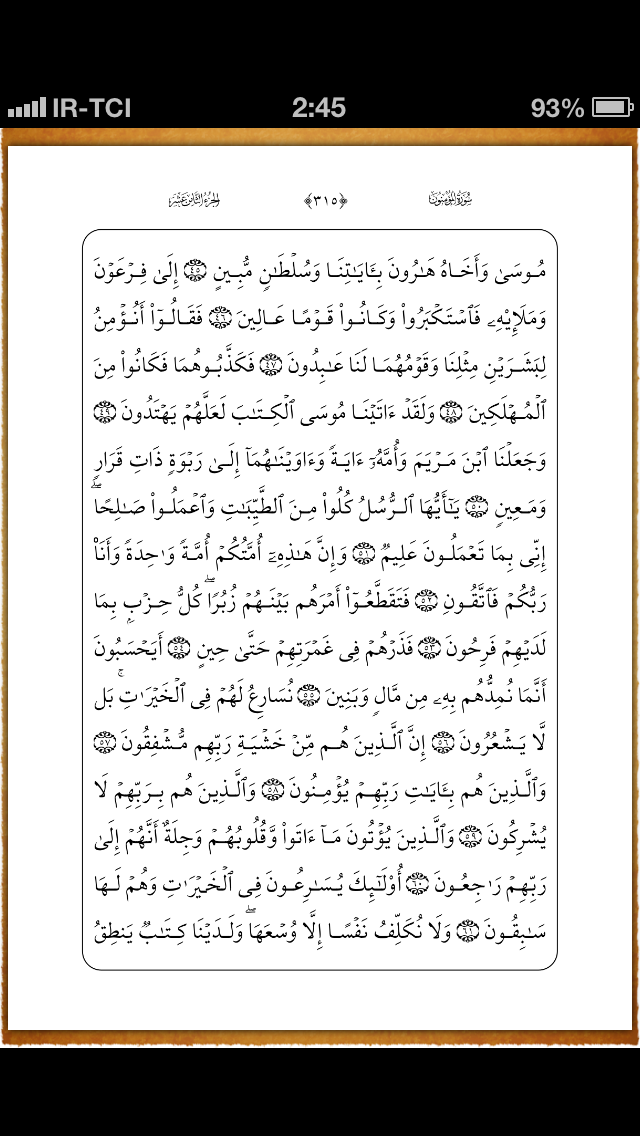 IR-TCI 2:45 93%
سُورَةُ المُؤۡمِنُونَ ﴿٣١٥﴾ الجُزۡءُ الثَّامِنَ عَشَرَ
مُوسَىٰ وَأَخَاهُ هَٰرُونَ بِـَٔايَٰتِنَا وَسُلۡطَٰنٖ مُّبِينٍ ٤٥ إِلَىٰ فِرۡعَوۡنَ
وَمَلَإِيْهِۦ فَٱسۡتَكۡبَرُواْ وَكَانُواْ قَوۡمًا عَالِينَ ٤٦ فَقَالُوٓاْ أَنُؤۡمِنُ
لِبَشَرَيۡنِ مِثۡلِنَا وَقَوۡمُهُمَا لَنَا عَٰبِدُونَ ٤٧ فَكَذَّبُوهُمَا فَكَانُواْ مِنَ
ٱلۡمُهۡلَكِينَ ٤٨ وَلَقَدۡ ءَاتَيۡنَا مُوسَى ٱلۡكِتَٰبَ لَعَلَّهُمۡ يَهۡتَدُونَ ٤٩
وَجَعَلۡنَا ٱبۡنَ مَرۡيَمَ وَأُمَّهُۥٓ ءَايَةٗ وَءَاوَيۡنَٰهُمَآ إِلَىٰ رَبۡوَةٖ ذَاتِ قَرَارٖ
وَمَعِينٖ ٥٠ يَٰٓأَيُّهَا ٱلرُّسُلُ كُلُواْ مِنَ ٱلطَّيِّبَٰتِ وَٱعۡمَلُواْ صَٰلِحًاۖ
إِنِّي بِمَا تَعۡمَلُونَ عَلِيمٞ ٥١ وَإِنَّ هَٰذِهِۦٓ أُمَّتُكُمۡ أُمَّةٗ وَٰحِدَةٗ وَأَنَا۠
رَبُّكُمۡ فَٱتَّقُونِ ٥٢ فَتَقَطَّعُوٓاْ أَمۡرَهُم بَيۡنَهُمۡ زُبُرٗاۖ كُلُّ حِزۡبِۭ بِمَا
لَدَيۡهِمۡ فَرِحُونَ ٥٣ فَذَرۡهُمۡ فِي غَمۡرَتِهِمۡ حَتَّىٰ حِينٍ ٥٤ أَيَحۡسَبُونَ
أَنَّمَا نُمِدُّهُم بِهِۦ مِن مَّالٖ وَبَنِينَ ٥٥ نُسَارِعُ لَهُمۡ فِي ٱلۡخَيۡرَٰتِۚ بَل
لَّا يَشۡعُرُونَ ٥٦ إِنَّ ٱلَّذِينَ هُم مِّنۡ خَشۡيَةِ رَبِّهِم مُّشۡفِقُونَ ٥٧
وَٱلَّذِينَ هُم بِـَٔايَٰتِ رَبِّهِمۡ يُؤۡمِنُونَ ٥٨ وَٱلَّذِينَ هُم بِرَبِّهِمۡ لَا
يُشۡرِكُونَ ٥٩ وَٱلَّذِينَ يُؤۡتُونَ مَآ ءَاتَواْ وَّقُلُوبُهُمۡ وَجِلَةٌ أَنَّهُمۡ إِلَىٰ
رَبِّهِمۡ رَٰجِعُونَ ٦٠ أُوْلَٰٓئِكَ يُسَٰرِعُونَ فِي ٱلۡخَيۡرَٰتِ وَهُمۡ لَهَا
سَٰبِقُونَ ٦١ وَلَا نُكَلِّفُ نَفۡسًا إِلَّا وُسۡعَهَاۖ وَلَدَيۡنَا كِتَٰبٞ يَنطِقُ